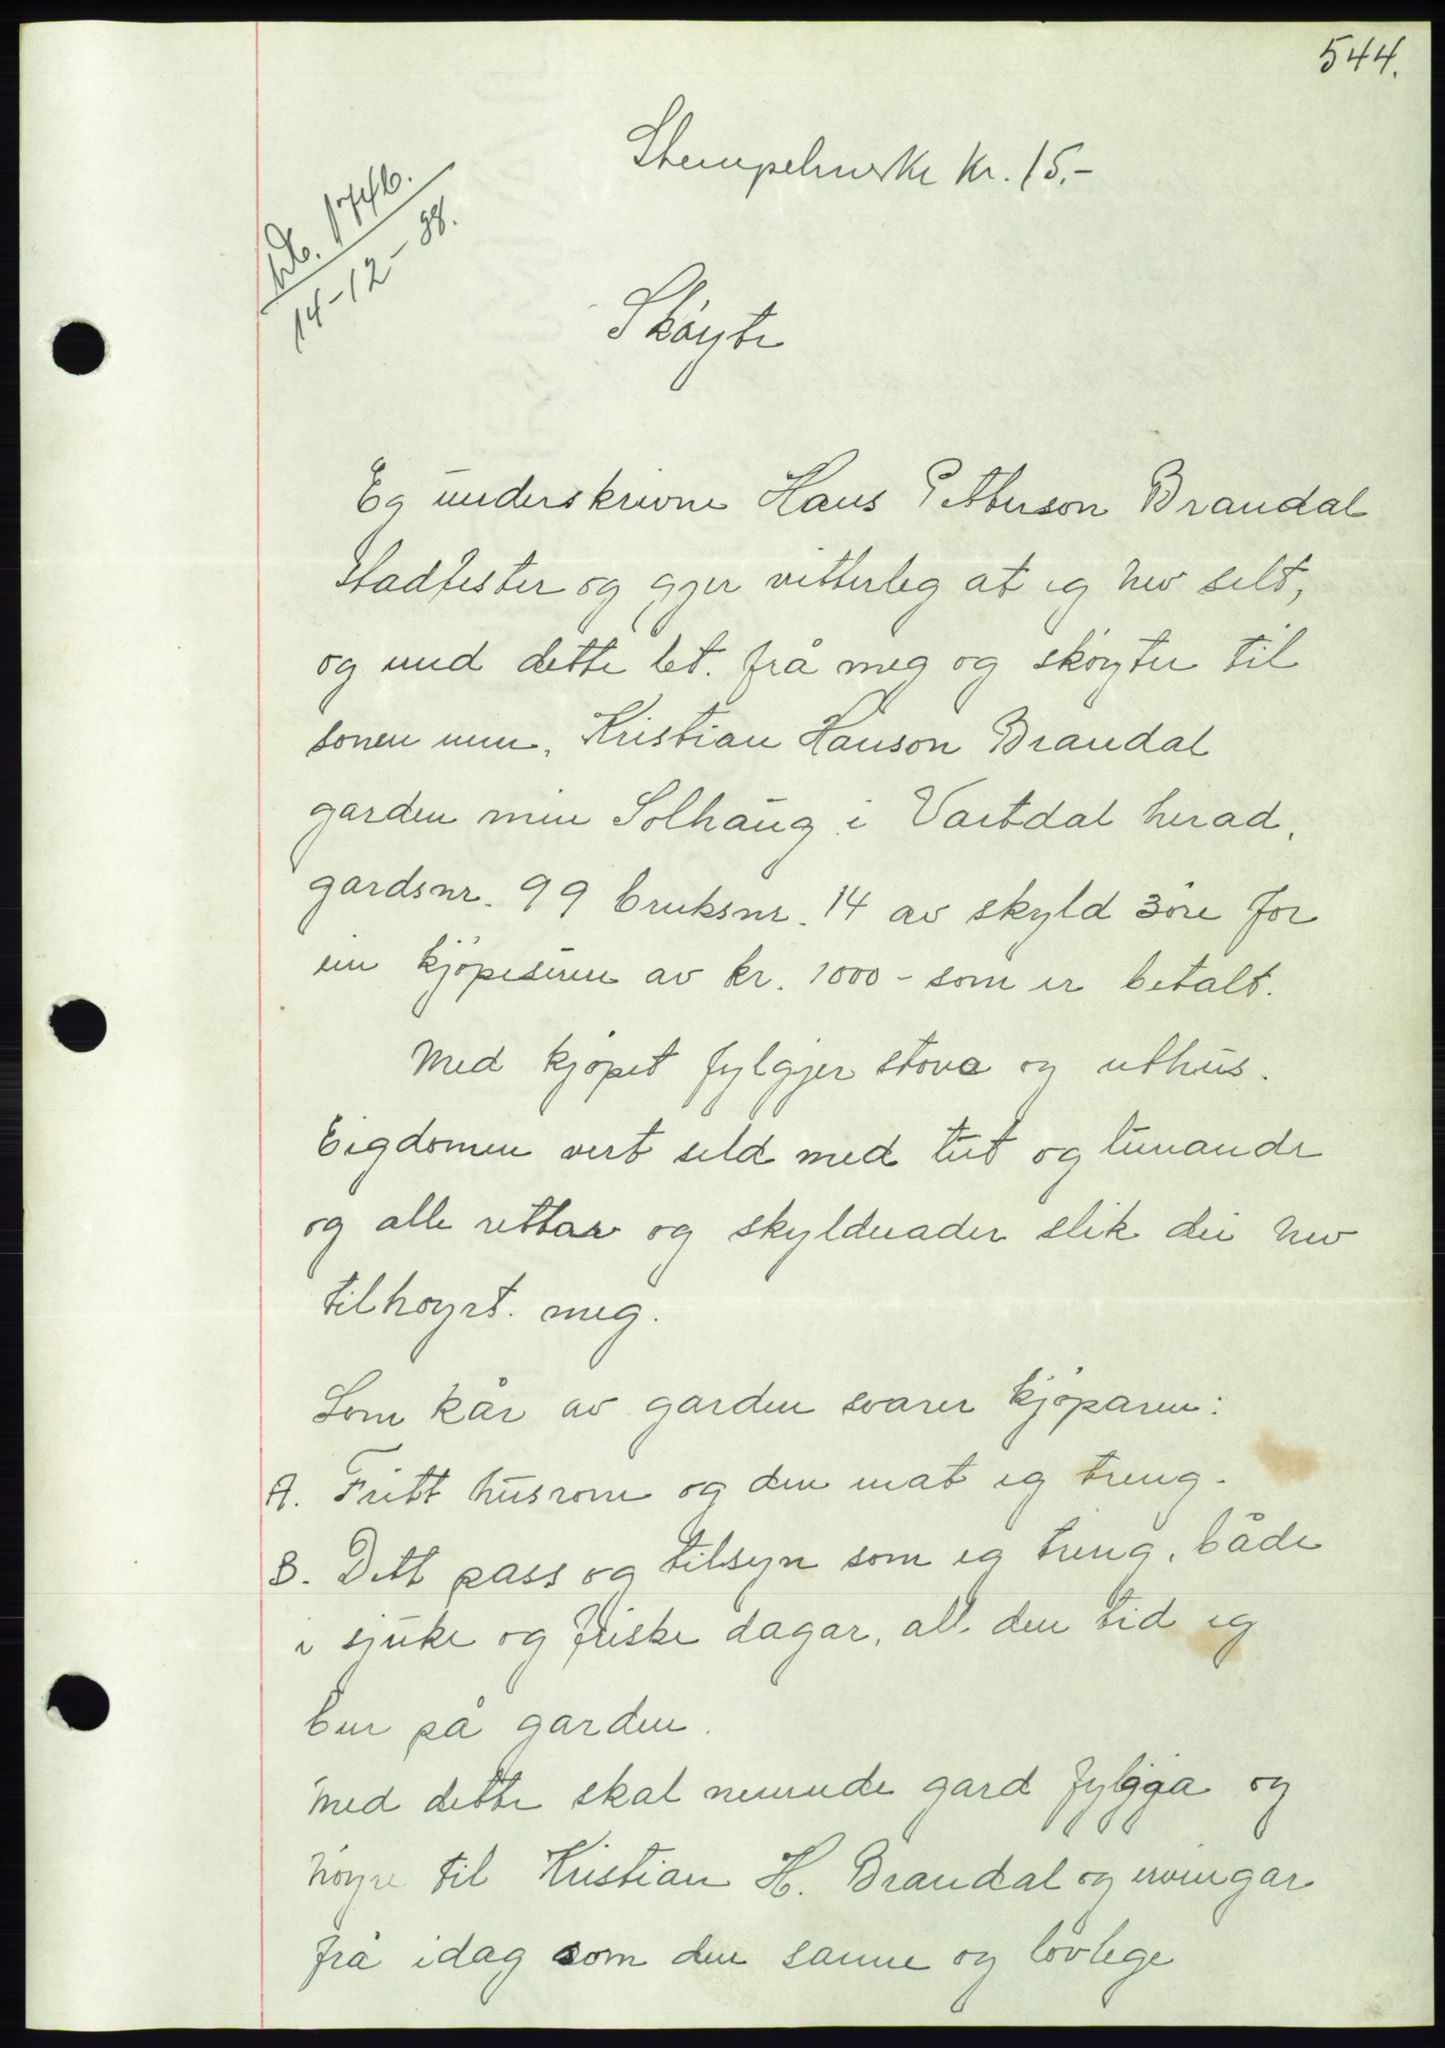 544.
Stempelmerke kr. 15.-
nr. 1746.
14-12-38.
Skøyte
Eg underskrivne Hans Petterson Brandal
stadfester og gjer vitterleg at eg hev selt,
og med dette let. frå meg og skøyter til
sonen min, Kristian Hanson Brandal
garden min Solhaug i Vartdal herad,
gardsnr. 99 bruksnr. 14 av skyld 3 øre for
ein kjøpesum av kr. 1000 - som er betalt.
Med kjøpet fylgjer stova og uthus.
Eigdomen vert seld med tut og lunande
og alle rettar og skyldnader slik dei hev
tilhøyrt. meg.
Som kår av garden svarer kjøparen:
A. Fritt husrom og den mat eg treng.
B. Dett pass og tilsyn som eg treng, både
i sjuke og friske dagar, all den tid eg
bur på garden.
Med dette skal nemnde gard fylgja og
høyre til Kristian H. Brandal og ervingar
frå idag som den sanne og lovlege